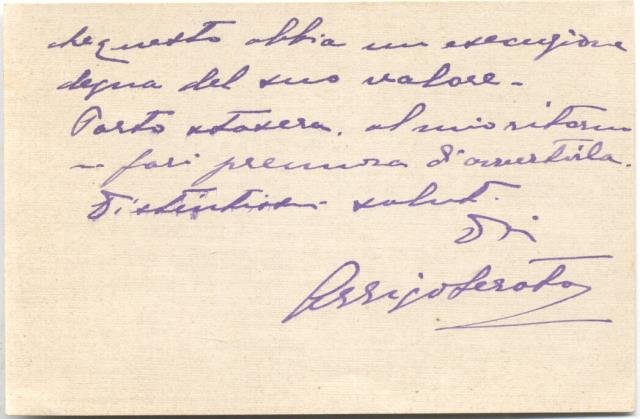 che questo abbia un esecuzione
degna del suo valore –
Parto stasera. al mio ritorno
– farò premura d'avvertirla.
Distintissimi saluti.
Di
Arrigo Serato